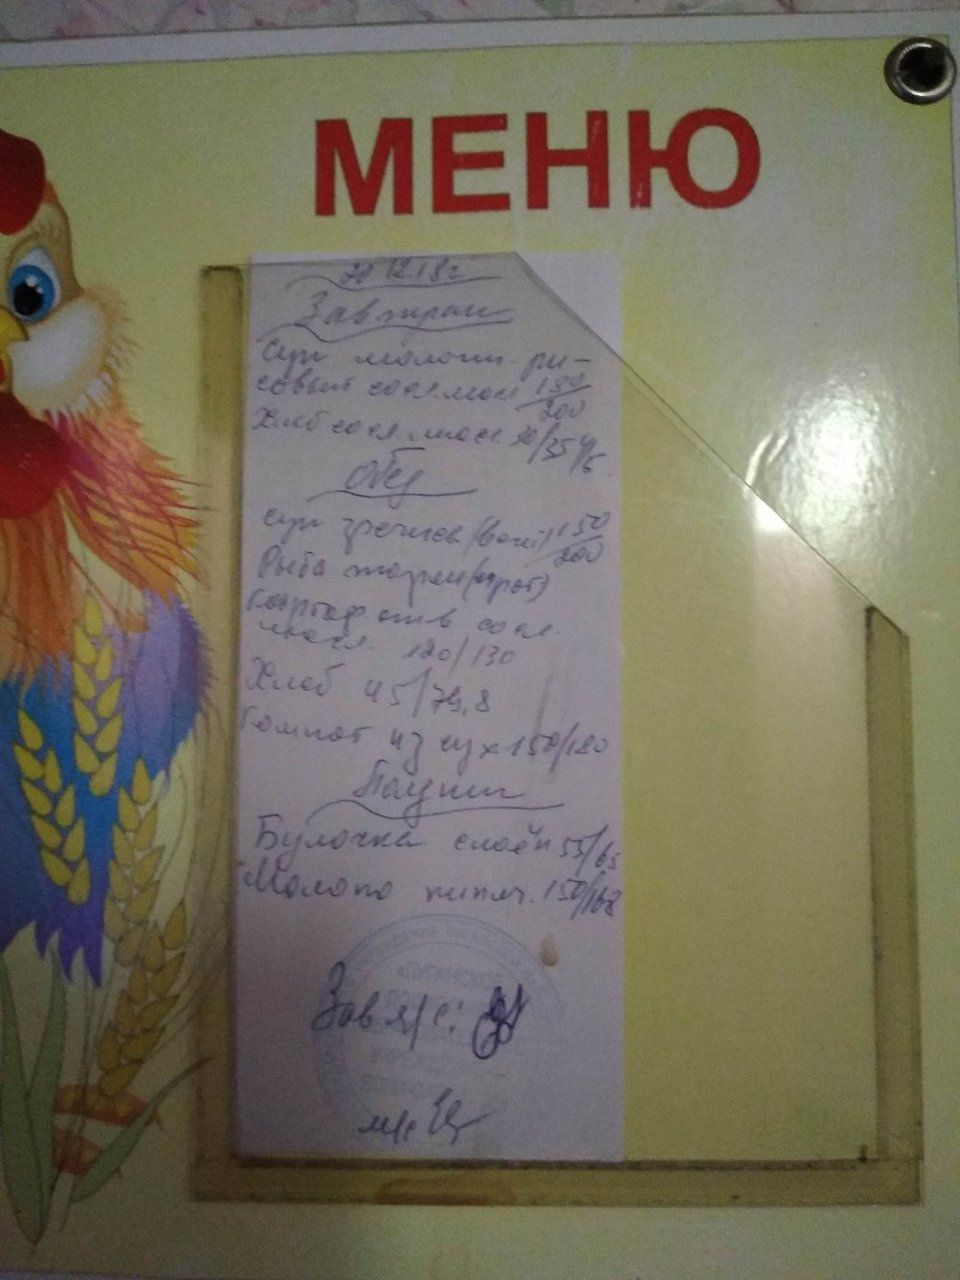 МЕНЮ
20.12.18г
Завтрак
Суп молочн. ри-
совый со сл. мас 150/200
Хлеб со сл. масл. 30/35 4/5
Обед
Суп гречнев (вегет) 150/200
Рыба жарен
Картоф. отв со сл.
масл. 120/130
Хлеб 45/79,8
Компот из сух 150/180
Полдник
Булочка слоён 55/65
Молоко кипяч. 150/168
ЛУГАНСКОЕ
Зав я/с:
м/с